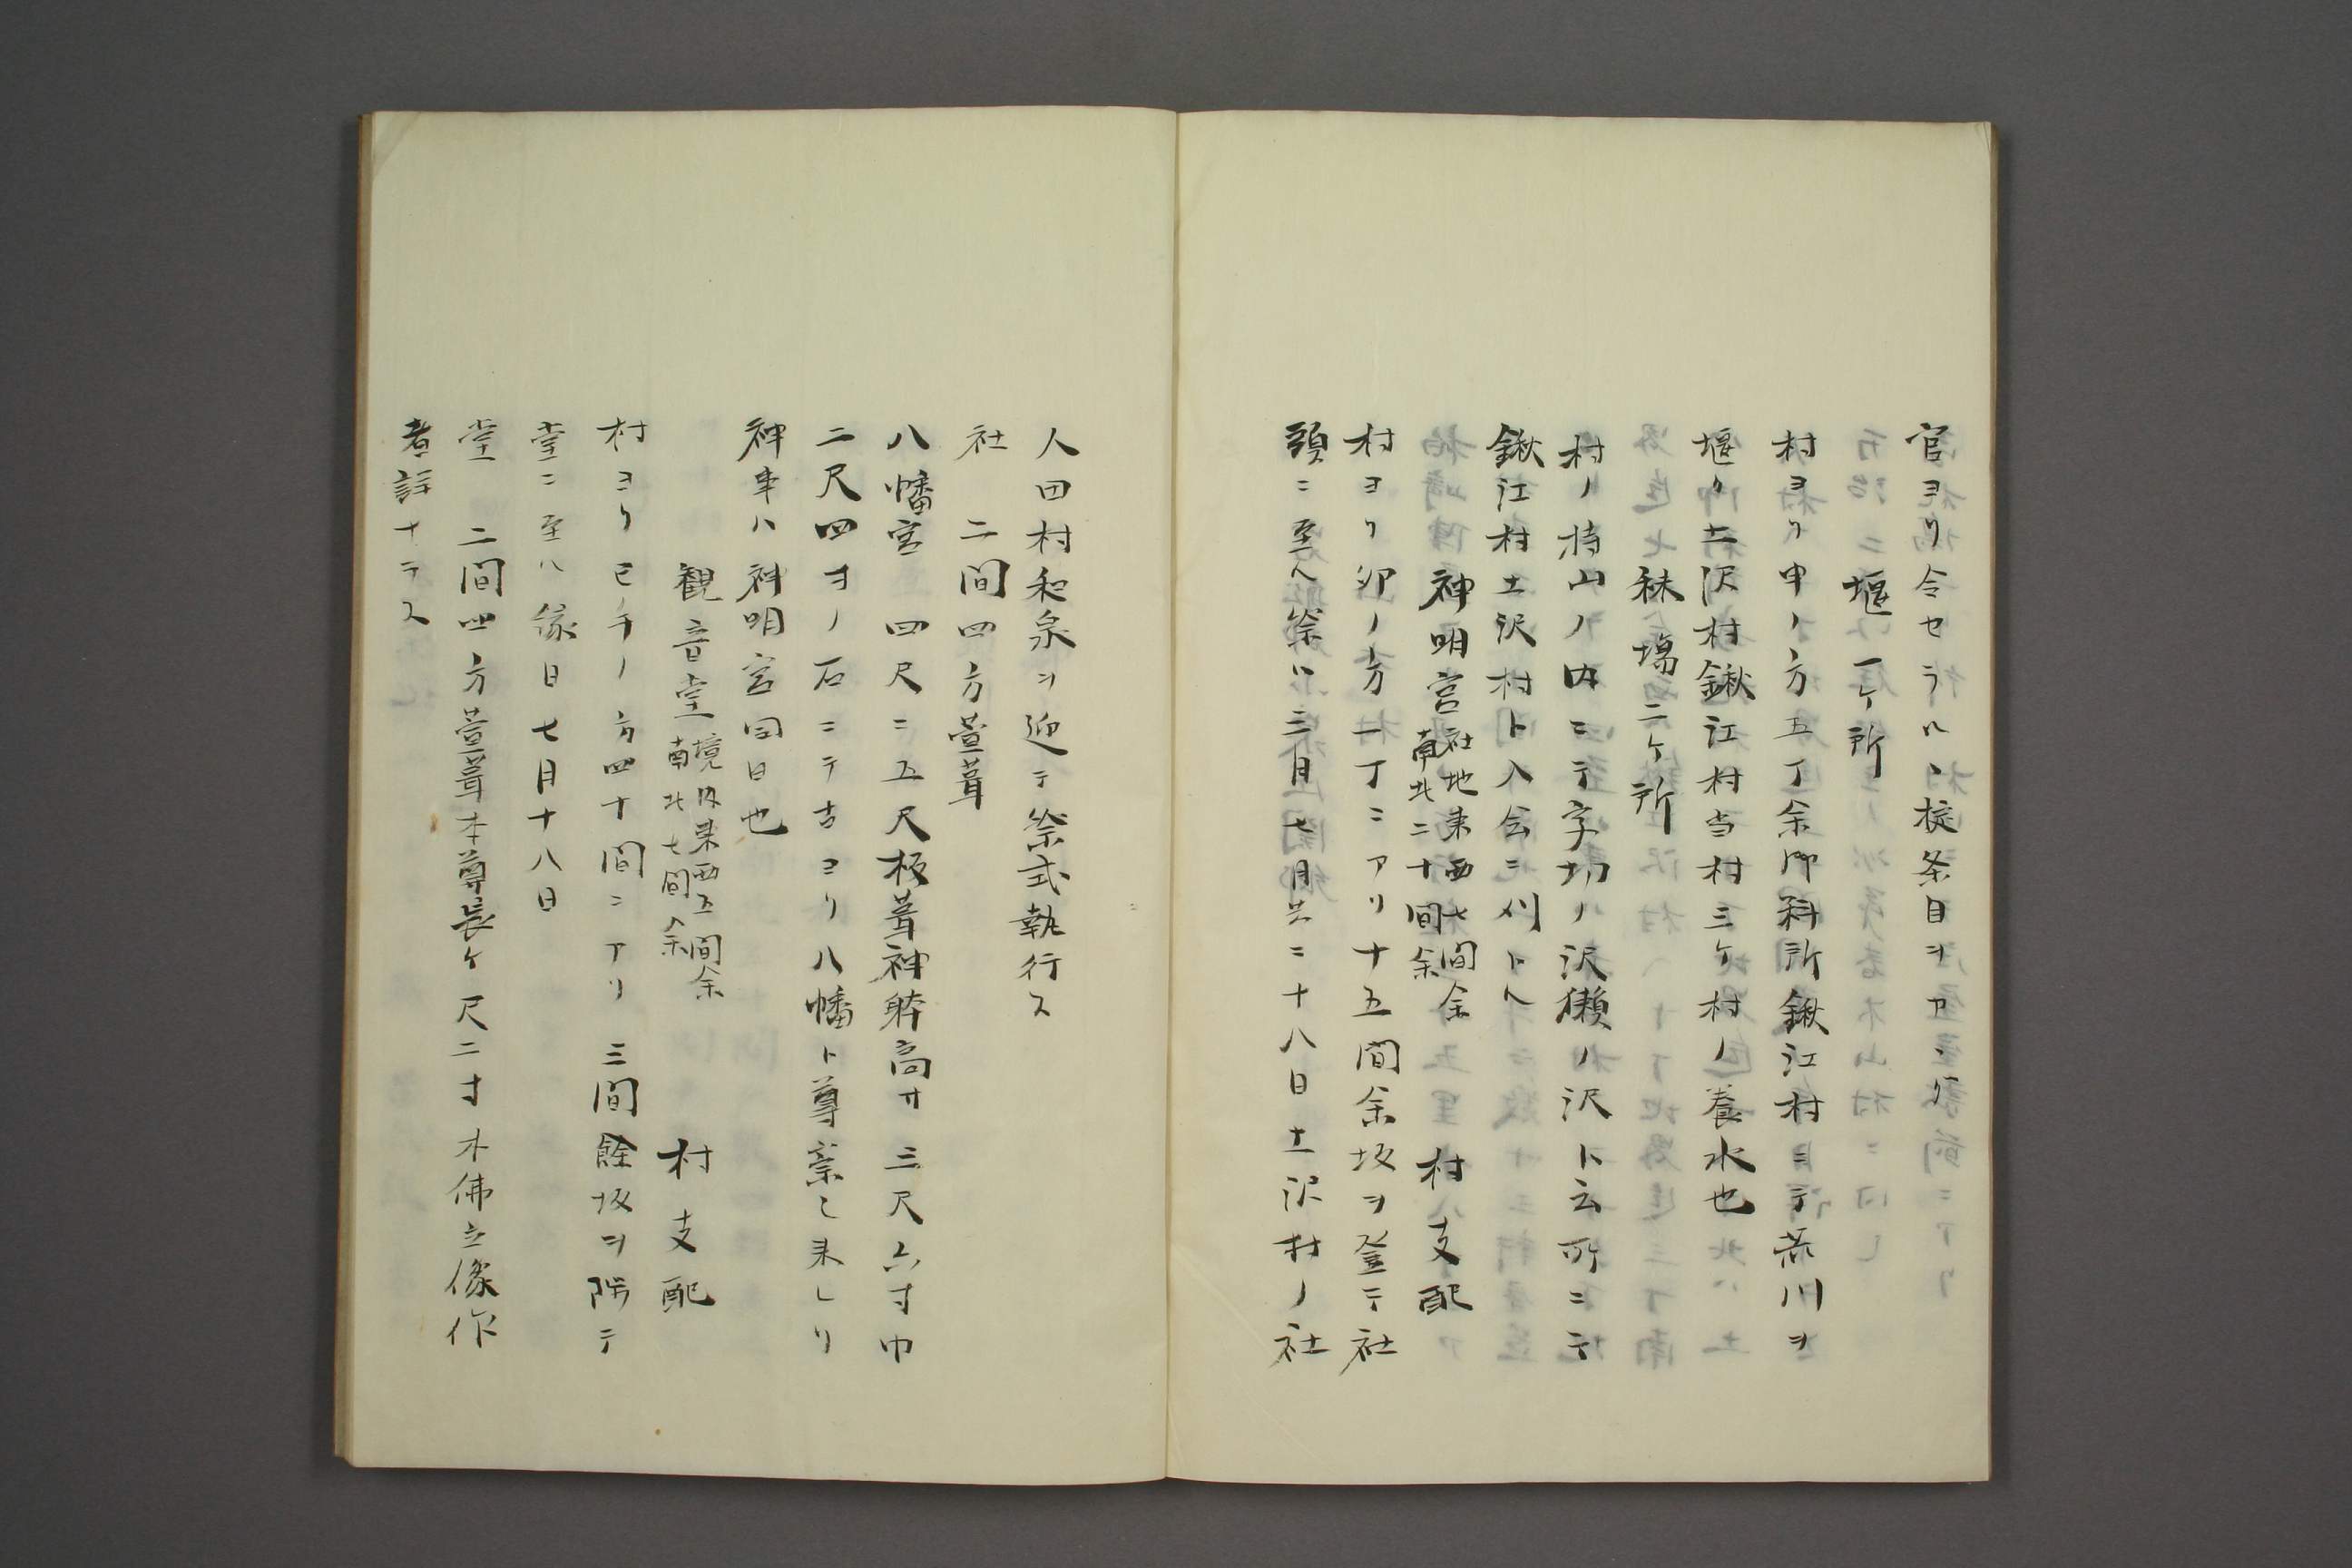 官ヨリ令セラルヽ掟条目ヲアヽグ
堰一ケ所
村ヨリ申ノ方五丁余御料所鍬江村ニテ荒川ヲ
堰ク土沢村鍬江村当村三ケ村ノ養水也
秣場二ケ所
村ノ持山ノ内ニテ字切ノ沢獺ノ沢ト云所ニテ
鍬江村土沢村ト入会ニ刈ト
神明宮 社地東西七間余 南北二十間余 村支配
村ヨリ卯ノ方一丁ニアリ十五間余坂ヲ登テ社
頭ニ至ル祭ハ三月七月共ニ十八日土沢村ノ社
人田村和泉ヲ迎テ祭式執行ス
社 二間四方萱葺
八幡宮 四尺ニ五尺板葺神躰高サ三尺六寸巾
二尺四寸ノ石ニテ古ヨリ八幡ト尊崇シ来レリ
神事ハ神明宮同日也
観音堂 境内東西五間余 南北七間余 村支配
村ヨリ巳ノ方四十間ニアリ三間餘坂ヲ階テ
堂ニ至ル縁日七月十八日
堂 二間四方萱葺本尊長ケ尺二寸木佛立像作
者詳ナラス